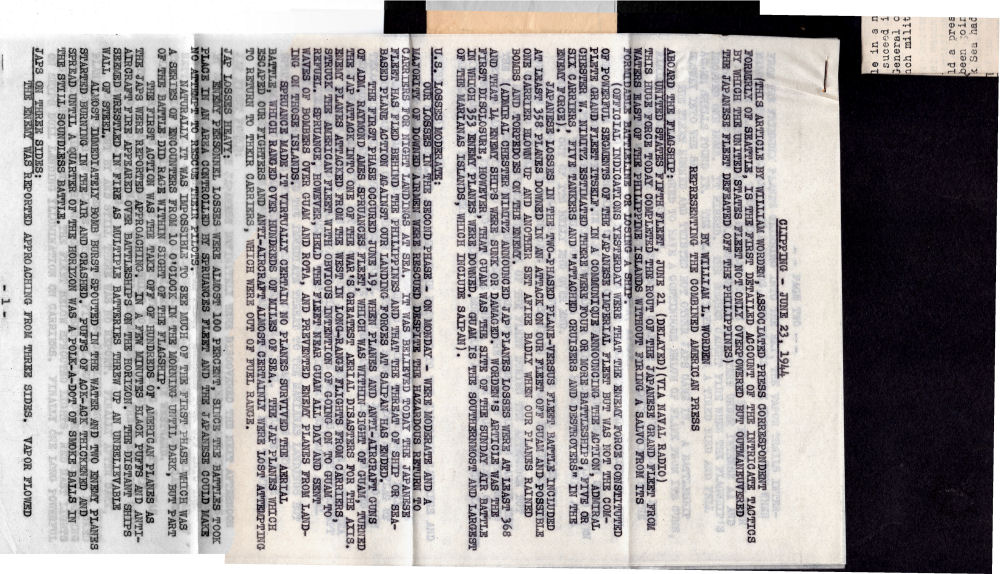 CLIPPING - JUNE 23, 1944
(THIS ARTICLE BY WILLIAM WORDEN, ASSOCIATED PRESS CORRESPONDENT
FORMERLY OF SEATTLE, IS THE FIRST DETAILED ACCOUNT OF THE INTRICATE TACTICS
BY WHICH THE UNITED STATES FLEET NOT ONLY OVERPOWERED BUT OUTMANEUVERED
THE JAPANESE FLEET DEFEATED OFF THE PHILIPPINES)
BY WILLIAM L. WORDEN
REPRESENTING THE COMBINED AMERICAN PRESS
ABOARD THE FLAGSHIP:
UNITED STATES FIFTH FLEET JUNE 21 (DELAYED)(VIA NAVAL RADIO)
THIS HUGE FORCE TODAY COMPLETED THE ROUT OF THE JAPANESE GRAND FLEET FROM
WATERS EAST OF THE PHILIPPINE ISLANDS WITHOUT FIRING A SALVO FROM ITS
FORMIDABLE BATTLELINE OR BATTLESHIP.
(OFFICIAL INDICATIONS YESTERDAY WERE THAT THE ENEMY FORCE CONSTITUTED
OF POWERFUL SEGMENTS OF THE JAPANESE IMPERIAL FLEET BUT WAS NOT THE COM-
PLETE GRAND FLEET ITSELF. IN A COMMUNIQUE ANNOUNCING THE ACTION, ADMIRAL
CHESTER W. NIMITZ ESTIMATED THERE WERE FOUR OR MORE BATTLESHIPS, FIVE OR
SIX CARRIERS, FIVE TANKERS AND "ATTACHED CRUISERS AND DESTROYERS" IN THE
JAPANESE LOSSES IN THE TWO-PHASED PLANE-VERSUS FLEET BATTLE INCLUDED
AT LEAST 358 PLANES DOWNED IN AN ATTACK ON OUR FLEET OFF GUAM AND POSSIBLE
ONE CARRIER BLOWN UP AND ANOTHER SET AFIRE BADLY WHEN OUR PLANES RAINED
BOMBS AND TORPEDOES ON THE ENEMY.
(ADMIRAL CHESTER W. NIMITZ ANNOUNCED JAP PLANES LOSSES WERE AT LEAST 368
AND THAT 14 ENEMY SHIPS WERE SUNK OR DAMAGED. WORDEN'S ARTICLE WAS THE
FIRST DISCLOSURE, HOWEVER, THAT GUAM WAS THE SITE OF THE SUNDAY AIR BATTLE
IN WHICH 353 ENEMY PLANES WERE DOWNED. GUAM IS THE SOUTHERNMOST AND LARGEST
OF THE MARIANAS ISLANDS, WHICH INCLUDE SAIPAN).
U.S. LOSSES MODERATE:
OUR LOSSES IN THE SECOND PHASE - ON MONDAY - WERE MODERATE AND A
MAJORITY OF DOWNED AIRMEN WERE RESCUED DESPITE THE HAZARDOUS RETURN TO
CARRIERS FOR NIGHT LANDINGS AT SEA. IT WAS BELIEVED TODAY THE JAPANESE
FLEET WAS FLEEING BEYOND THE PHILIPPINES AND THAT THE THREAT OF SEA-
BASED PLANE ACTION AGAINST OUR LANDING FORCES AT SAIPAN HAS ENDED.
THE FIRST PHASE OCCURED JUNE 19. WHEN PLANES AND ANTI-AIRCRAFT GUNS
OF ADM. RAYMOND AMES SPRUANCES FLEET, WHICH WAS WITHIN SIGHT OF GUAM, TURNED
THE JAP ATTACK INTO ONE OF THE WAR'S GREATEST AERIAL DISASTERS FOR THE AXIS.
ENEMY PLANES ATTACKED FROM THE WEST IN LONG-RANGE FLIGHTS FROM CARRIERS
STRUCK THE AMERICAN FLEET WITH OBVIOUS INTENTION OF GOING ON TO GUAM FOR
REFUGE. SPRUANCE, HOWEVER, HELD THE FLEET NEAR GUAM ALL DAY AND SENT
WAVES OF BOMBERS OVER GUAM AND ROTA, AND PREVENTED ENEMY PLANES FROM LAND-
ING ON THESE ISLANDS.
SPRUANCE MADE IT VIRTUALLY CERTAIN NO PLANES SURVIVED THE AERIAL
BATTLE, WHICH RANGED OVER HUNDREDS OF MILES OF SEA. THE JAP PLANES WHICH
ESCAPED OUR FIGHTERS AND ANTI-AIRCRAFT ALMOST CERTAINLY WERE LOST ATTEMPTING
TO RETURN TO THEIR CARRIERS, WHICH WERE OUT OF FUEL RANGE.
JAP LOSSES HEAVY:
ENEMY PERSONNEL LOSSES WERE ALMOST 100 PERCENT, SINCE THE BATTLES TOOK
PLACE IN AN AREA CONTROLLED BY SPRUANCES FLEET AND THE JAPANESE COULD MAKE
NO ATTEMPT TO RESCUE THEIR PILOTS.
NATURALLY IT WAS IMPOSSIBLE TO SEE MUCH OF THE FIRST PHASE WHICH WAS
A SERIES OF ENCOUNTERS FROM 10 O'CLOCK IN THE MORNING UNTIL DARK, BUT PART
OF THE BATTLE DID RAGE WITHIN SIGHT OF THE FLAGSHIP.
THE FIRST ACTION WAS THE TAKE OFF OF HUNDREDS OF AMERICAN PLANES AS
THE JAPS WERE REPORTED APPROACHING. IN A FEW MINUTES BLACK PUFFS AND ANTI-
AIRCRAFT FIRE APPEARED OVER BATTLESHIPS ON THE HORIZON. THE DISTANT SHIPS
SEEMED WRESTLED IN FIRE AS MULTIPLE BATTERIES THREW UP AN UNBELIEVABLE
WALL OF STEEL.
ALMOST IMMEDIATELY BOMB BURST SPOUTED IN THE WATER AND TWO ENEMY PLANES
STARTED BURNING IN THE AIR AND CRASHED. PUFFS OF ACK-ACK THICKENED AND
SPREAD UNTIL A QUARTER OF THE HORIZON WAS A POLK-A-DOT OF SMOKE BALLS IN
THE STILL SOUNDLESS BATTLE.
JAPS ON THREE SIDES:
THE ENEMY WAS REPORTED APPROACHING FROM THREE SIDES. VAPOR FLOWED
- 1 -
ld a pres
been join
k Sea had
le in a n
suceed i
General o
nch milit